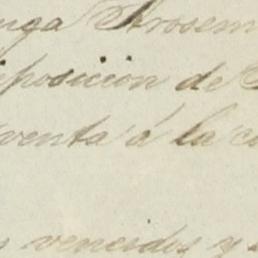 nga Arosem
sposicion de
venta á la c
vencidos y